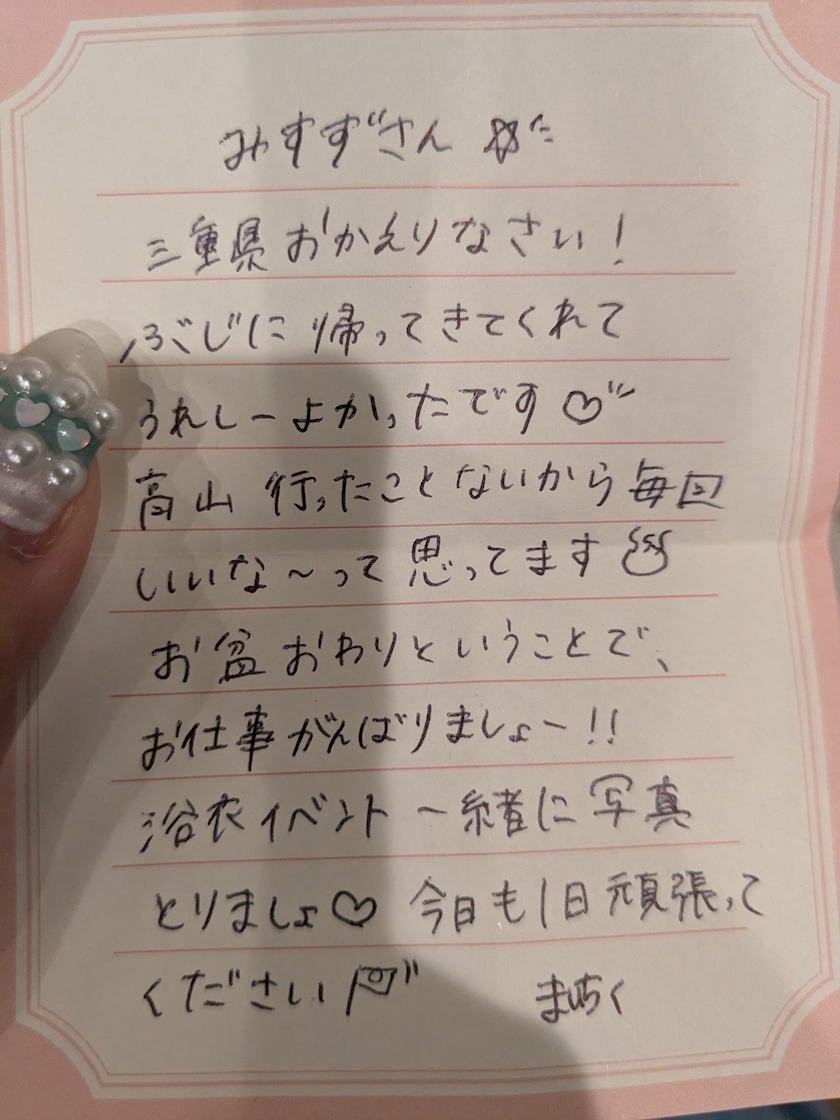 みすずさん ☆
三重県おかえりなさい!
ぶじに帰ってきてくれて
うれしーよかったです♡
高山 行ったことないから毎回
いいな〜って思ってます
お盆おわりということで、
お仕事がんばりましょー!!
浴衣イベント一緒に写真
とりましょ♡ 今日も1日頑張って
ください